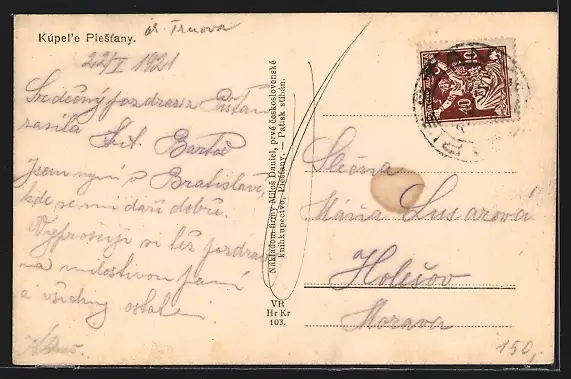 Kúpel'e Piešťany.
22/I 1921
Srdečný pozdrav z Pišťan
zasílá Bartoš
Jsem nyní v Bratislavě,
kde se mi daří dobře.
též pozdrav
na milostivou paní
a všechny ostatní
Nákladom firmy Miloš Daniel, prvé československé
kníhkupectvo, Piešťany. — Patisk stíhán.
VR
Hr Kr
103.
40
Slečna
Máňa Lusarová
Holešov
Morava
150,-